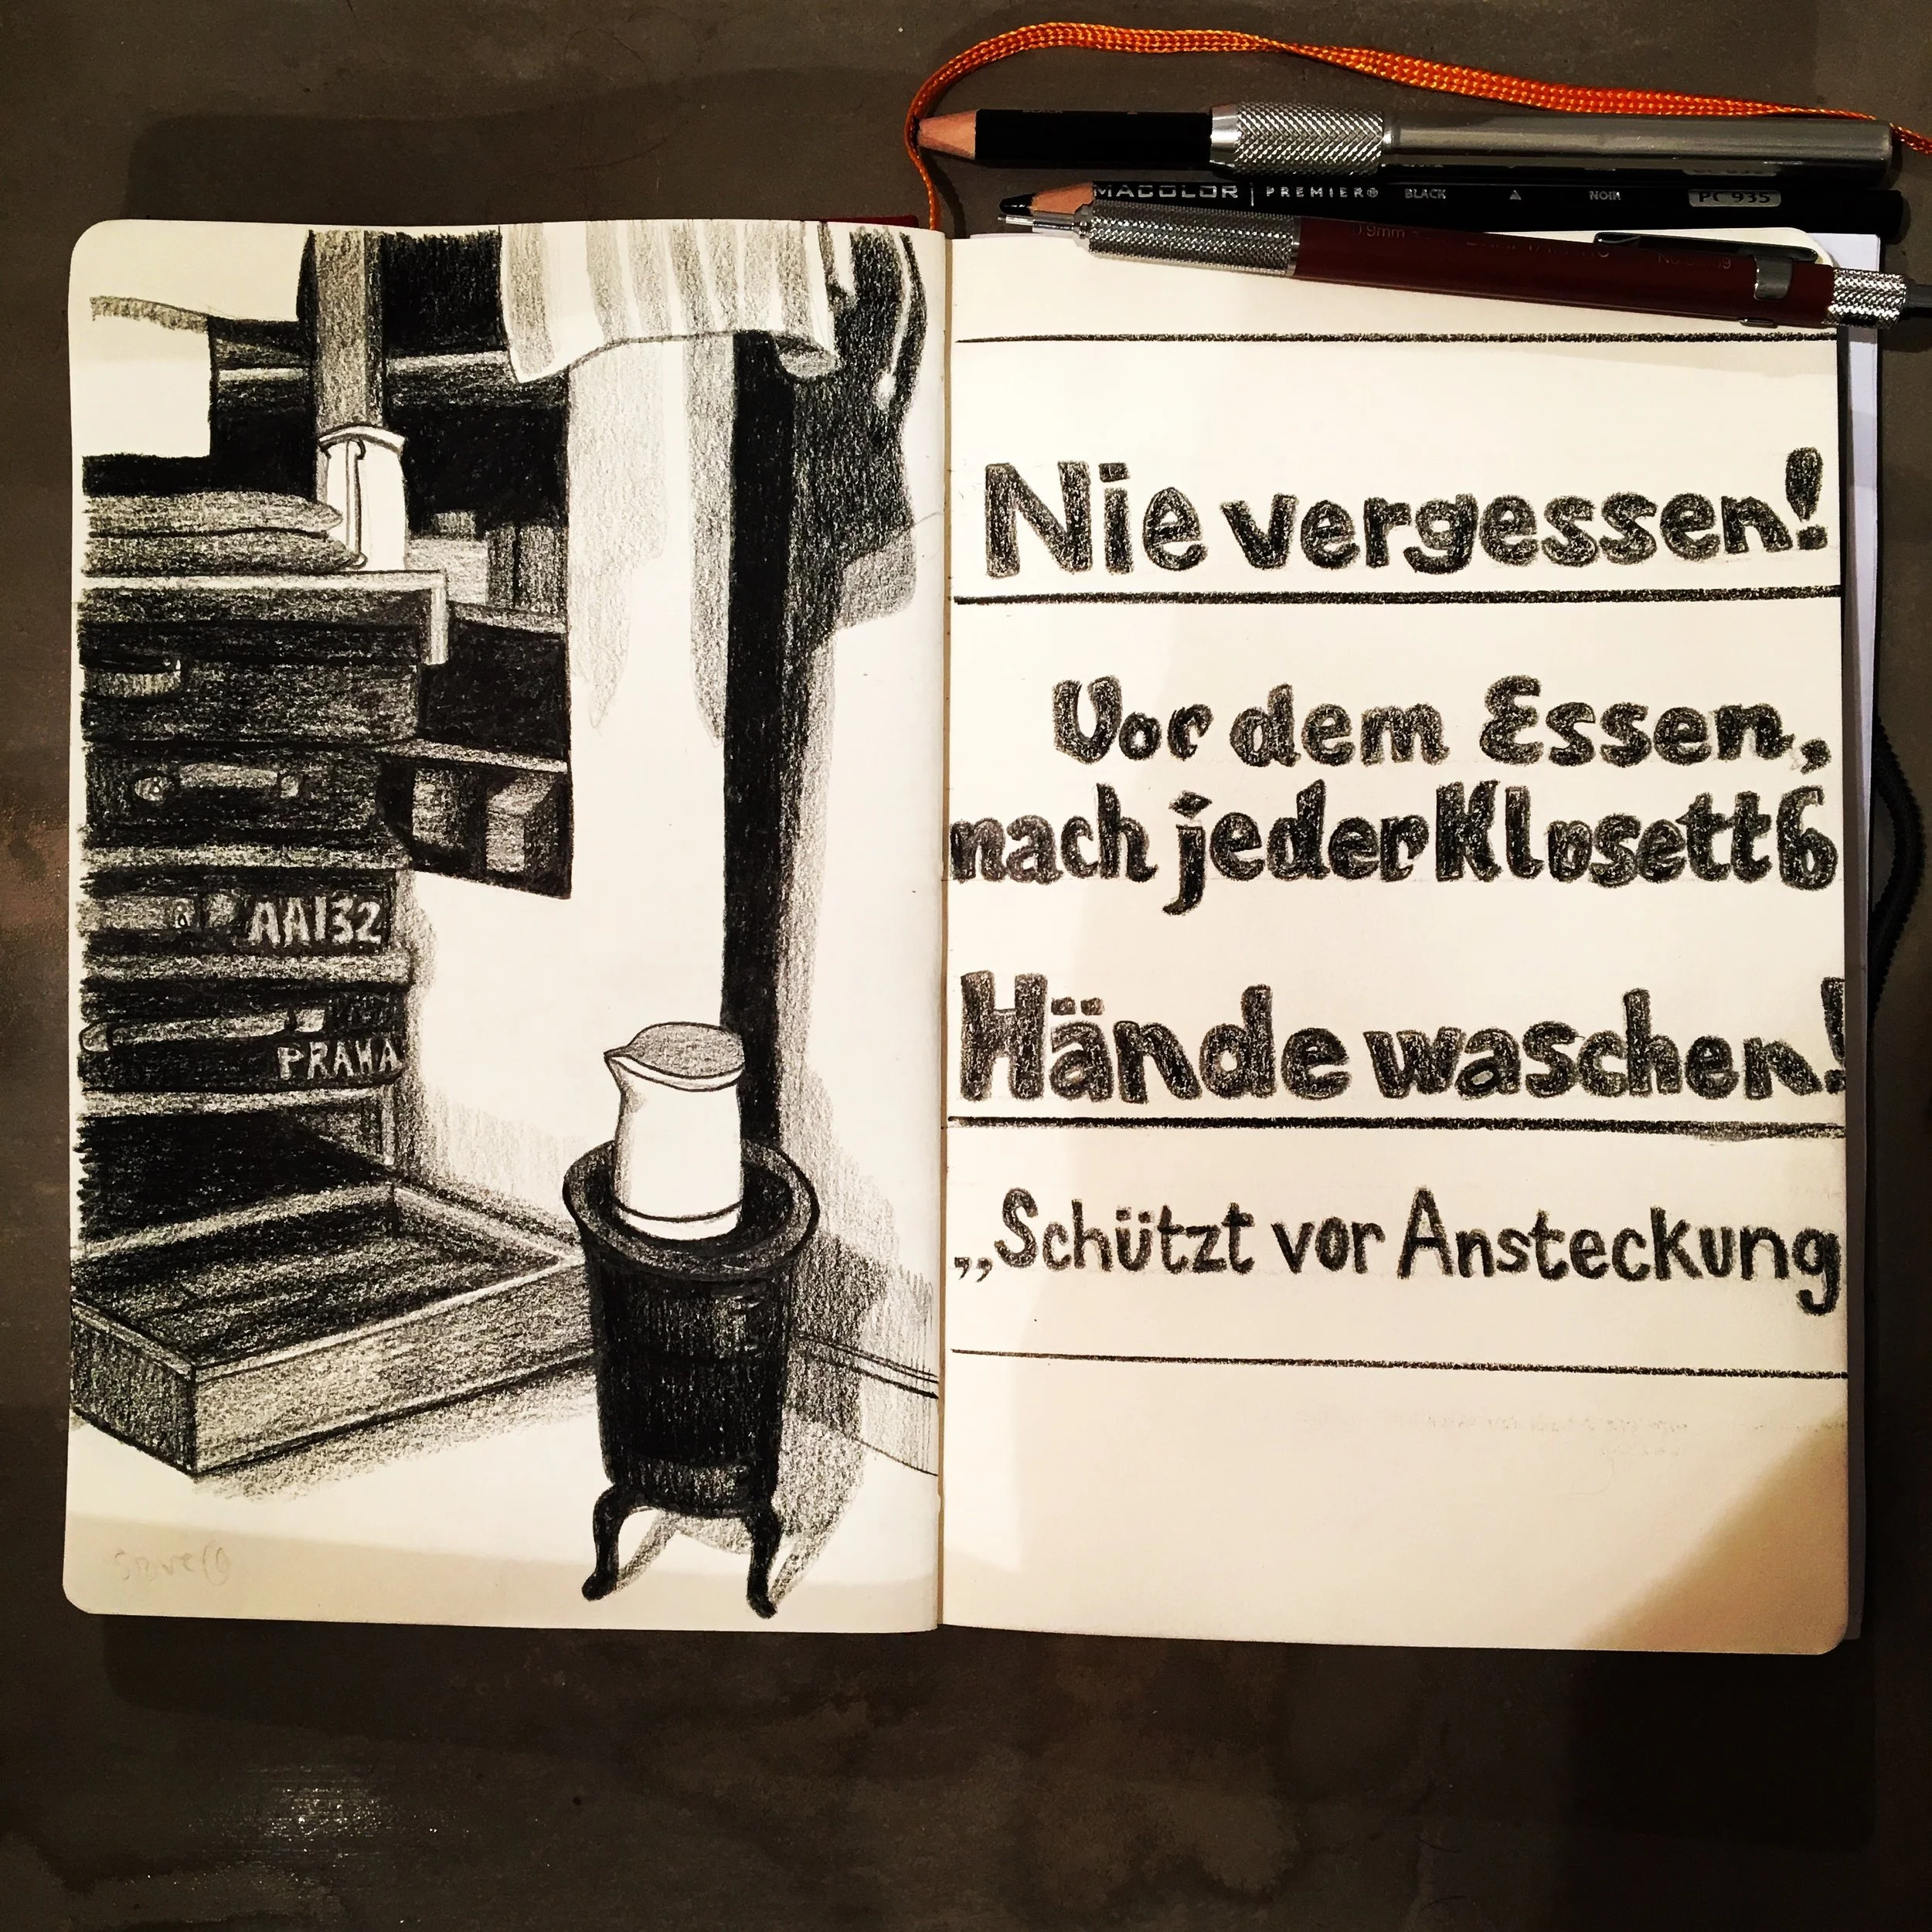 MACOLOR | PREMIER BLACK NOIR PC 935
0.9mm
AA132
PRAHA
Nie vergessen!
Vor dem Essen,
nach jeder Klosettb
Hände waschen!
„Schützt vor Ansteckung